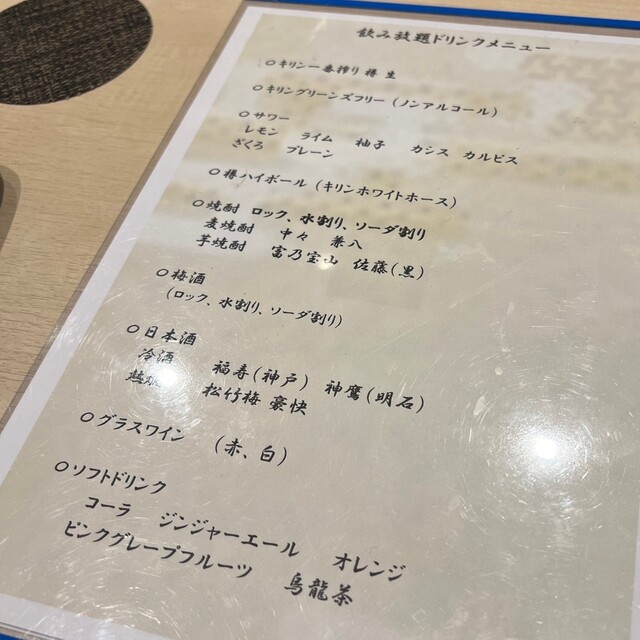 飲み放題ドリンクメニュー
○キリン一番搾り 樽 生
○キリングリーンズフリー(ノンアルコール)
○サワー
レモン ライム 柚子 カシス カルピス
ざくろ プレーン
○樽ハイボール(キリンホワイトホース)
○焼酎 ロック、水割り、ソーダ割り
麦焼酎 中々 兼八
芋焼酎 富乃宝山 佐藤(黒)
○梅酒
(ロック、水割り、ソーダ割り)
○日本酒
冷酒 福寿(神戸) 神鷹(明石)
熱燗 松竹梅 豪快
○グラスワイン (赤、白)
○ソフトドリンク
コーラ ジンジャーエール オレンジ
ピンクグレープフルーツ 烏龍茶